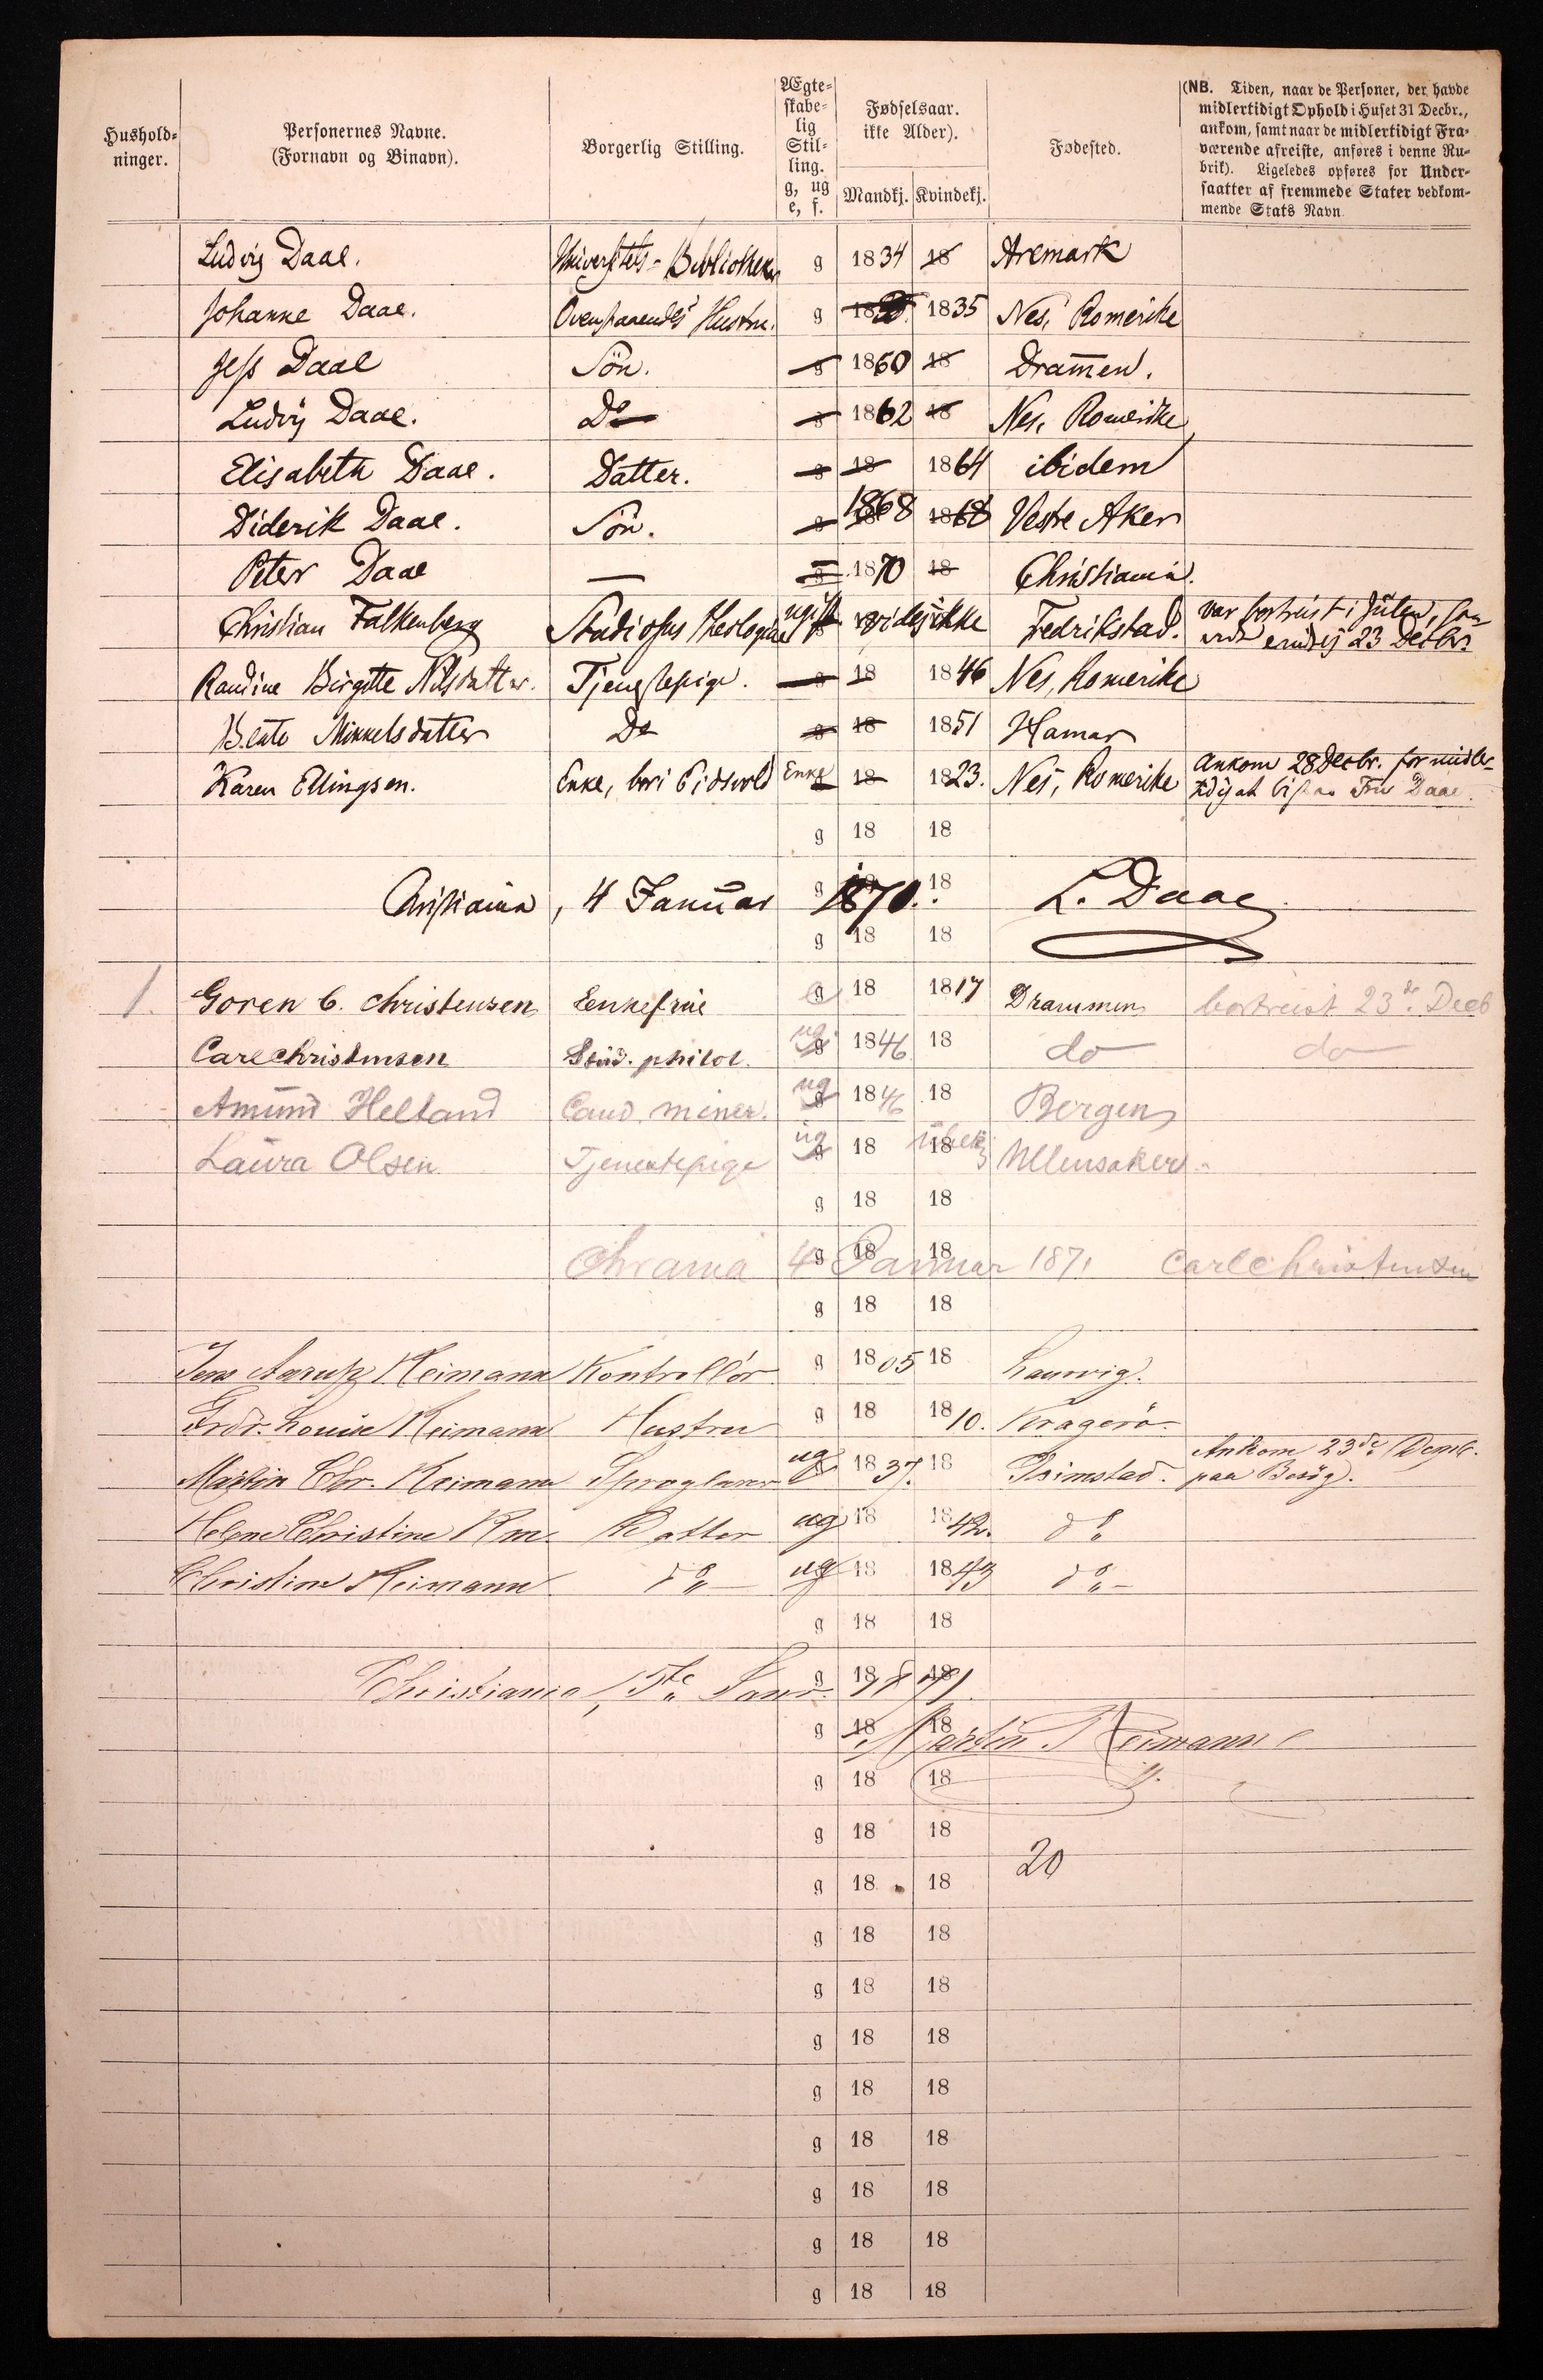 Hushold-
ninger.
Personernes Navne.
(Fornavn og Binavn).
Borgerlig Stilling.
Ægte-
skabe-
lig
Stil-
ling.
g, ug
e, f.
Fødselsaar.
ikke Alder).
Mandkj. Kvindekj.
Fødested.
(NB. Tiden, naar de Personer, der havde
midlertidigt Ophold i Huset 31 Decbr.,
ankom, samt naar de midlertidigt Fra-
værende afreiste, anføres i denne Ru-
brik). Ligeledes opføres for Under-
saatter af fremmede Stater vedkom-
mende Stats Navn.
Ludvig Daae. Universitets-Bibliothekar g 1834 18 Aremark
Johanne Daae. Ovenstaaendes Hustru. g 18 1835 Nes, Romerike
Jess Daae Søn. g 1860 18 Drammen.
Ludvig Daae. Do g 1862 18 Nes, Romerike
Elisabeth Daae. Datter. g 18 1864 ibidem
Diderik Daae. Søn. g 1868 1868 Vestre Aker
Peter Daae — g 1870 18 Christiania.
Christian Falkenberg Studiosus theologiæ ugift vides ikke Fredrikstad. var bortreist i Julen,
23 Decbr.
Randine Birgitte Nilsdatter. Tjenestepige. g 18 1846 Nes, Romerike
Beate Mikkelsdatter Do g 18 1851 Hamar
Karen Ellingsen. Enke, bor i Eidsvold Enke 18 1823. Nes, Romerike Ankom 28 Decbr. for midler-
tidigt at bistaa Fru Daae.
g 18 18
Christiania, 4 Januar 1870. L. Daae
g 18 18
g 18 18
1. Goren C. Christensen Eenkefrue e g 18 1817 Drammen bortreist 23de Decb
Carl Christensen Stud. philol. ug g 1846 18 do do
Amund Helland Cand. miner. ug g 1846 18 Bergen
Laura Olsen Tjenestepige ug g 18 18 Ullensaker
g 18 18
Chrania 4 Januar 1871 Carl Christensen
g 18 18
g 18 18
Jens Aarup Reimann Kontrollör g 1805 18 Laurvig.
Frdr. Louise Reimann Hustru g 18 1810. Kragerö
Martin Chr. Reimann Sproglærer ug g 1837. 18 Grimstad. Ankom 23de Decmb.
paa Besög).
Helene Christine Rm. Datter ug 18 1842. do
Christine Reimann do ug 18 1843 do
g 18 18
Christiania, 5te Janr. 1871
g 18 18
Martin Reimann
g 18 18
g 18 18
g 18 18
20
g 18 18
g 18 18
g 18 18
g 18 18
g 18 18
g 18 18
g 18 18
g 18 18
g 18 18
g 18 18